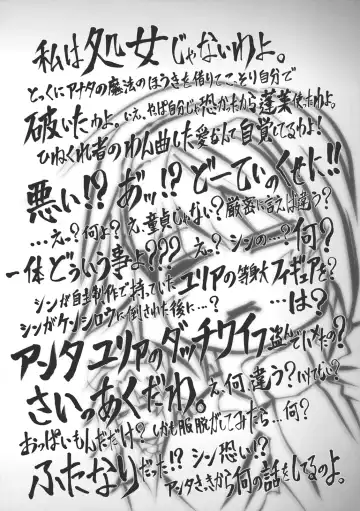 私は処女じゃないわよ。
とっくにアナタの魔法のほうきを借りてこっそり自分で
破いたわよ。いえ、やぱ自分じゃ恐かったから蓬莱使ったわよ。
ひねくれ者のわん曲した愛なんて自覚してるわよ!
悪い!?あ"ッ!?どーてぃのくせに!!
…えっ?何よ?え、童貞じゃない?厳密に言えば違う?
一体どういう事よ???え?シンの…?何?
シンが自主制作で持っていたユリアの等身大フィギュアを?
シンがケンシロウに倒された後に…?…は?
アンタユリアのダッチワイフ盗んでいたの?
さいっあくだわ。え、何、違う?いけてない?
おっぱいもんだだけ?しかも服脱がしてみたら…何?
ふたなりだった!?シン恐い!?
アンタさっきから何の話をしてるのよ。